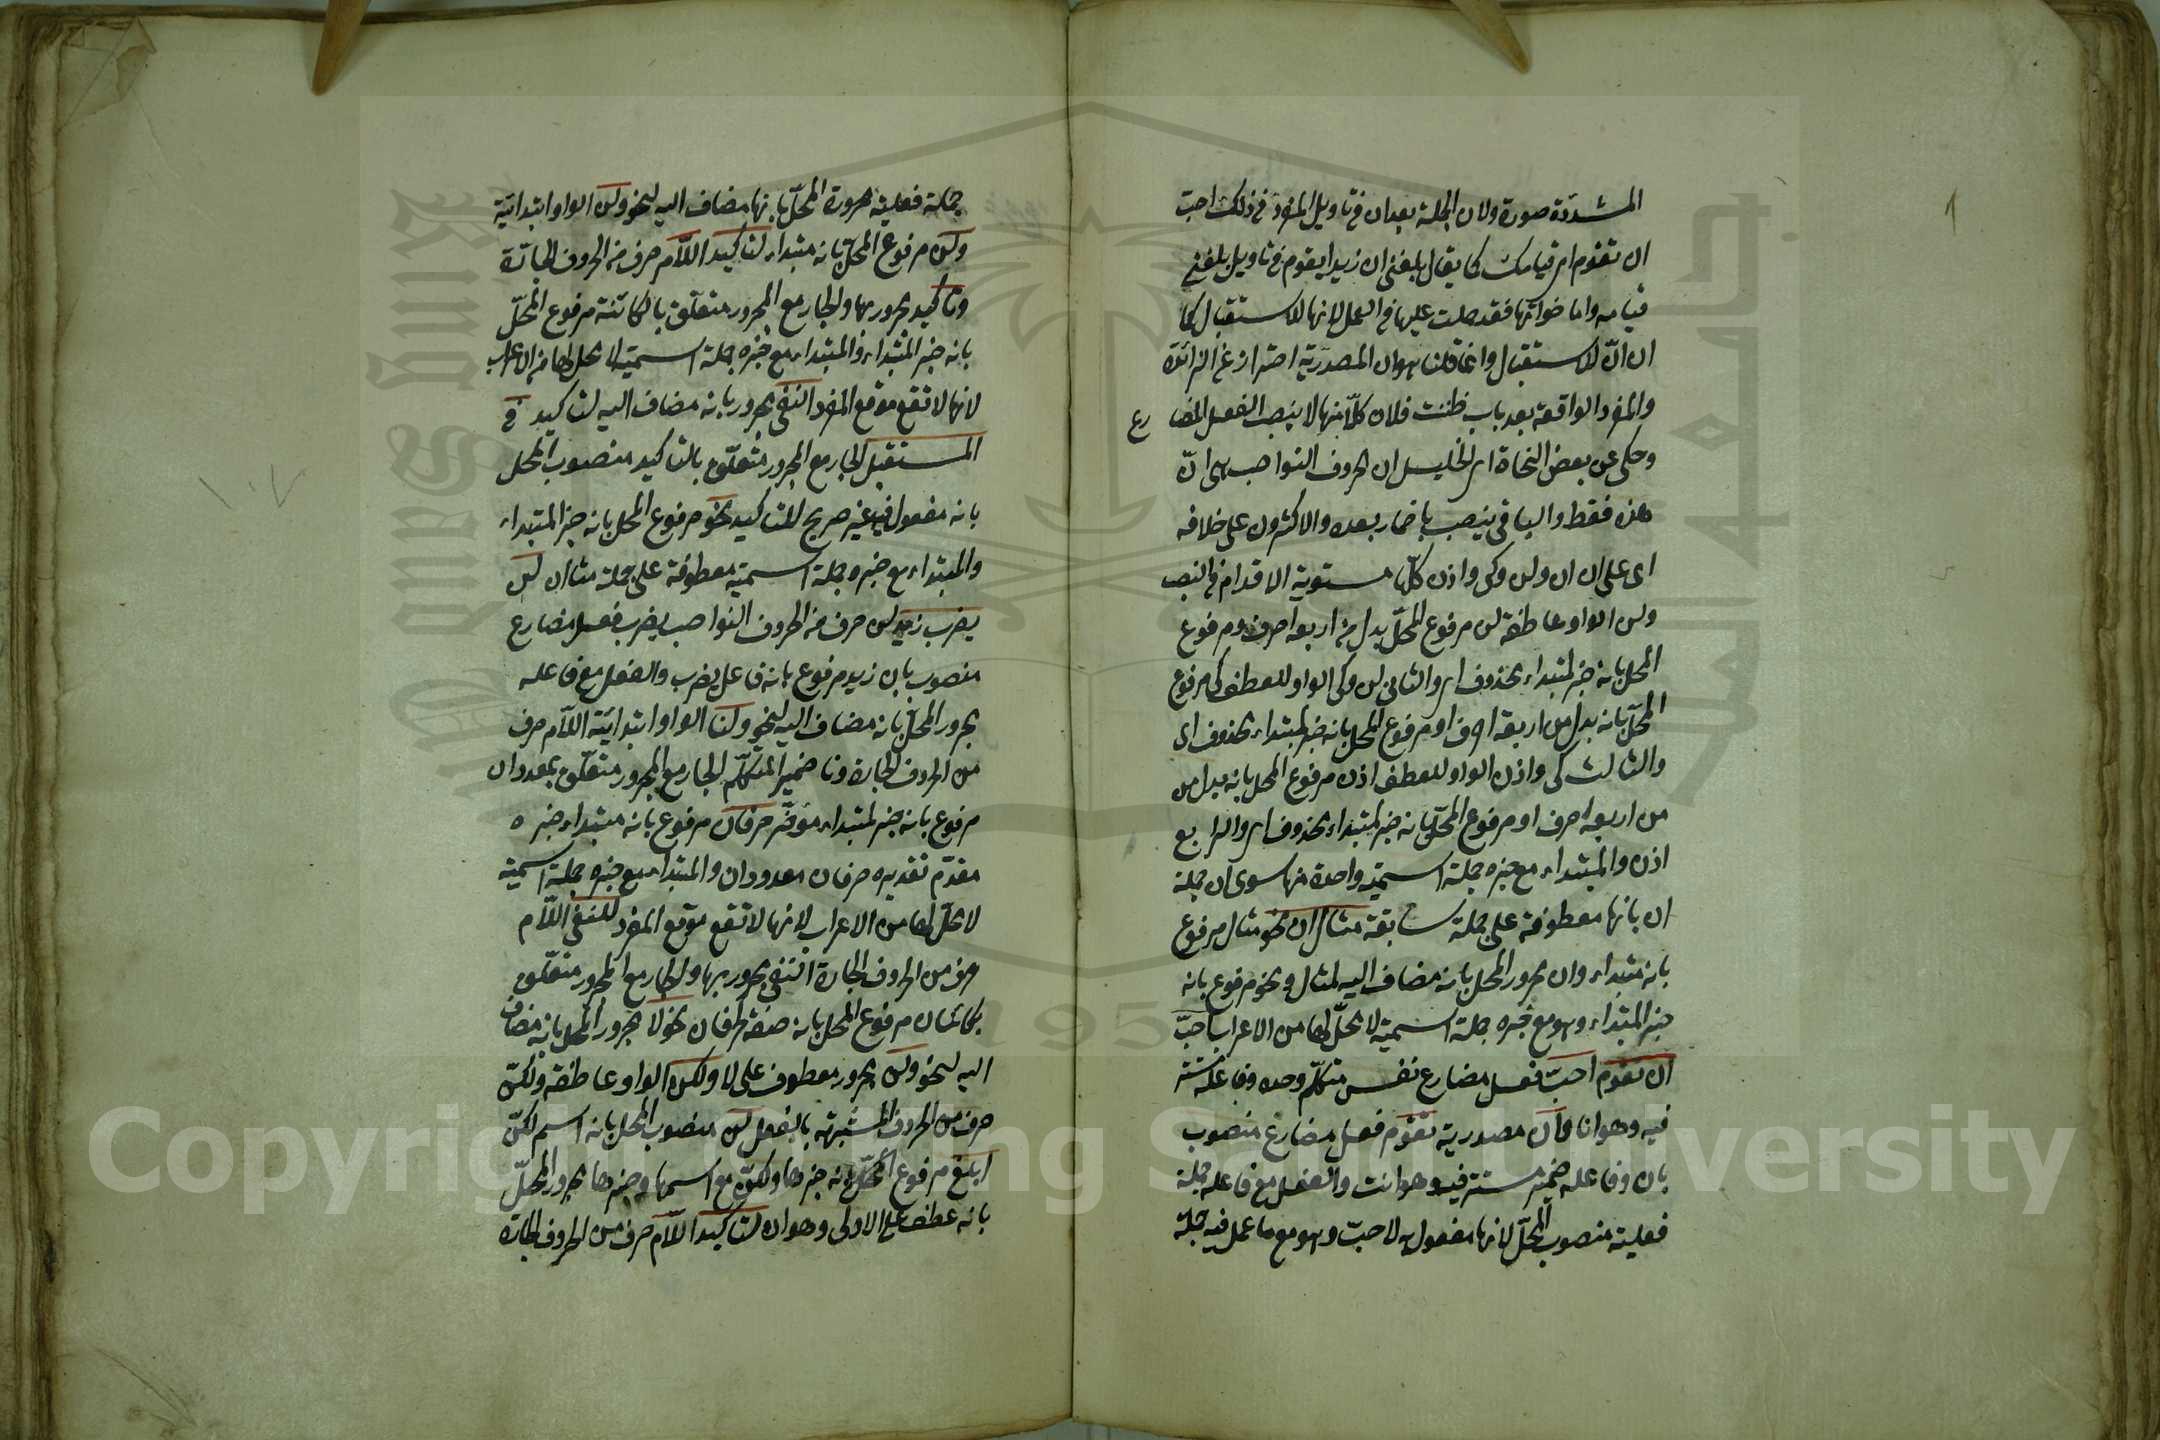 المشددة صورة ولان الجملة بعدان في تاويل المفرد في ذلك احب
ان تقوم اي قيامك كما يقال بلغني ان زيدا يقوم في تاويل بلغني
قيامه واما اخواتها فقد حملت عليها في العمل لانها للاستقبال كما
ان ان للاستقبال وانما قلنا هو ان المصدرية احتراز عن الزائدة
والمفرد الواقعة بعد باب ظننت فلان كلا منها لا ينصب الفعل المضا
رع
وحكى عن بعض النحاة اي الخليل ان الحروف النواصب هي ان
هذه فقط والباقي ينصب باضمار بعده والاكثرون على خلافه
اى على ان ان ولن وكى واذن كلها مستوية الاقدام في النصب
ولن الواو عاطفة لن مرفوع المحل بدل من اربعة احرف ومرفوع
المحل بانه خبر لمبتداء محذوف اي والثاني لن وكى الواو للعطف كى مرفوع
المحل بانه بدل من اربعة احرف او مرفوع المحل بانه خبر لمبتداء محذوف اى
والثالث كى واذن الواو للعطف اذن مرفوع المحل بانه بدل من
من اربعة احرف او مرفوع المحل بانه خبر لمبتداء محذوف اي والرابع
اذن والمبتداء مع خبره جملة اسمية واحدة منها سوى ان جملة
ان بانها معطوفة على جملة سابقة مثال ان نحو مثال مرفوع
بانه مبتداء وان مجرور المحل بانه مضاف اليه لمثال ونحو مرفوع بانه
خبر المبتداء وهو مع خبره جملة اسمية لا محل لها من الاعراب احب
ان تقوم احب فعل مضارع نفس متكلم وحده وفاعله مستتر
فيه وهو انا وان مصدرية تقوم فعل مضارع منصوب
بان وفاعله ضمير مستتر فيه وهو انت والفعل مع فاعله جملة
فعلية منصوب المحل لانها مفعول به لاحب وهو مع ما عمل فيه جملة
جملة فعلية مجرورة المحل بانها مضاف اليه لنحو ولن الواو ابتدائية
ولن مرفوع المحل بانه مبتداء لتاكيد اللام حرف من الحروف الجارة
وتاكيد مجرور بها والجار مع المجرور متعلق بالكائنة مرفوع المحل
بانه خبر المبتداء والمبتداء مع خبره جملة اسمية لا محل لها من الاعراب
لانها لا تقع موقع المفرد النفى مجرور بانه مضاف اليه لتاكيد في
المستقبل الجار مع المجرور متعلق بالتاكيد منصوب المحل
بانه مفعول فيه غير صريح للتاكيد نحو مرفوع المحل بانه خبر المبتداء
والمبتداء مع خبره جملة اسمية معطوفة على جملة مثال ان لن
يضرب زيد لن حرف من الحروف النواصب يضرب فعل مضارع
منصوب بان زيد مرفوع بانه فاعل يضرب والفعل مع فاعله
مجرور المحل بانه مضاف اليه لنحو ولنا الواو ابتدائية اللام حرف
من الحروف الجارة ونا ضمير المتكلم الجار مع المجرور متعلق بمعدودان
مرفوع بانه خبر لمبتداء مؤخر حرفان مرفوع بانه مبتداء خبره
مقدم تقديره حرفان معدودان والمبتداء مع خبره جملة اسمية
لا محل لها من الاعراب لانها لا تقع موقع المفرد للنفى اللام
حرف من الحروف الجارة النفى مجرور بها والجار مع المجرور متعلق
بكائنان مرفوع المحل بانه صفة حرفان نحو لا مجرور المحل بانه مضاف
اليه لنحو ولن مجرور معطوف على لا ولكن الواو عاطفة ولكن
حرف من الحروف المشبهة بالفعل لن منصوب المحل بانه اسم لكن
ابلغ مرفوع المحل بانه خبرها ولكن مع اسمها وخبرها مجرور المحل
بانه عطف على الاولى وهو ان لتاكيد اللام حرف من الحروف الجارة
Copyright © King Saud University